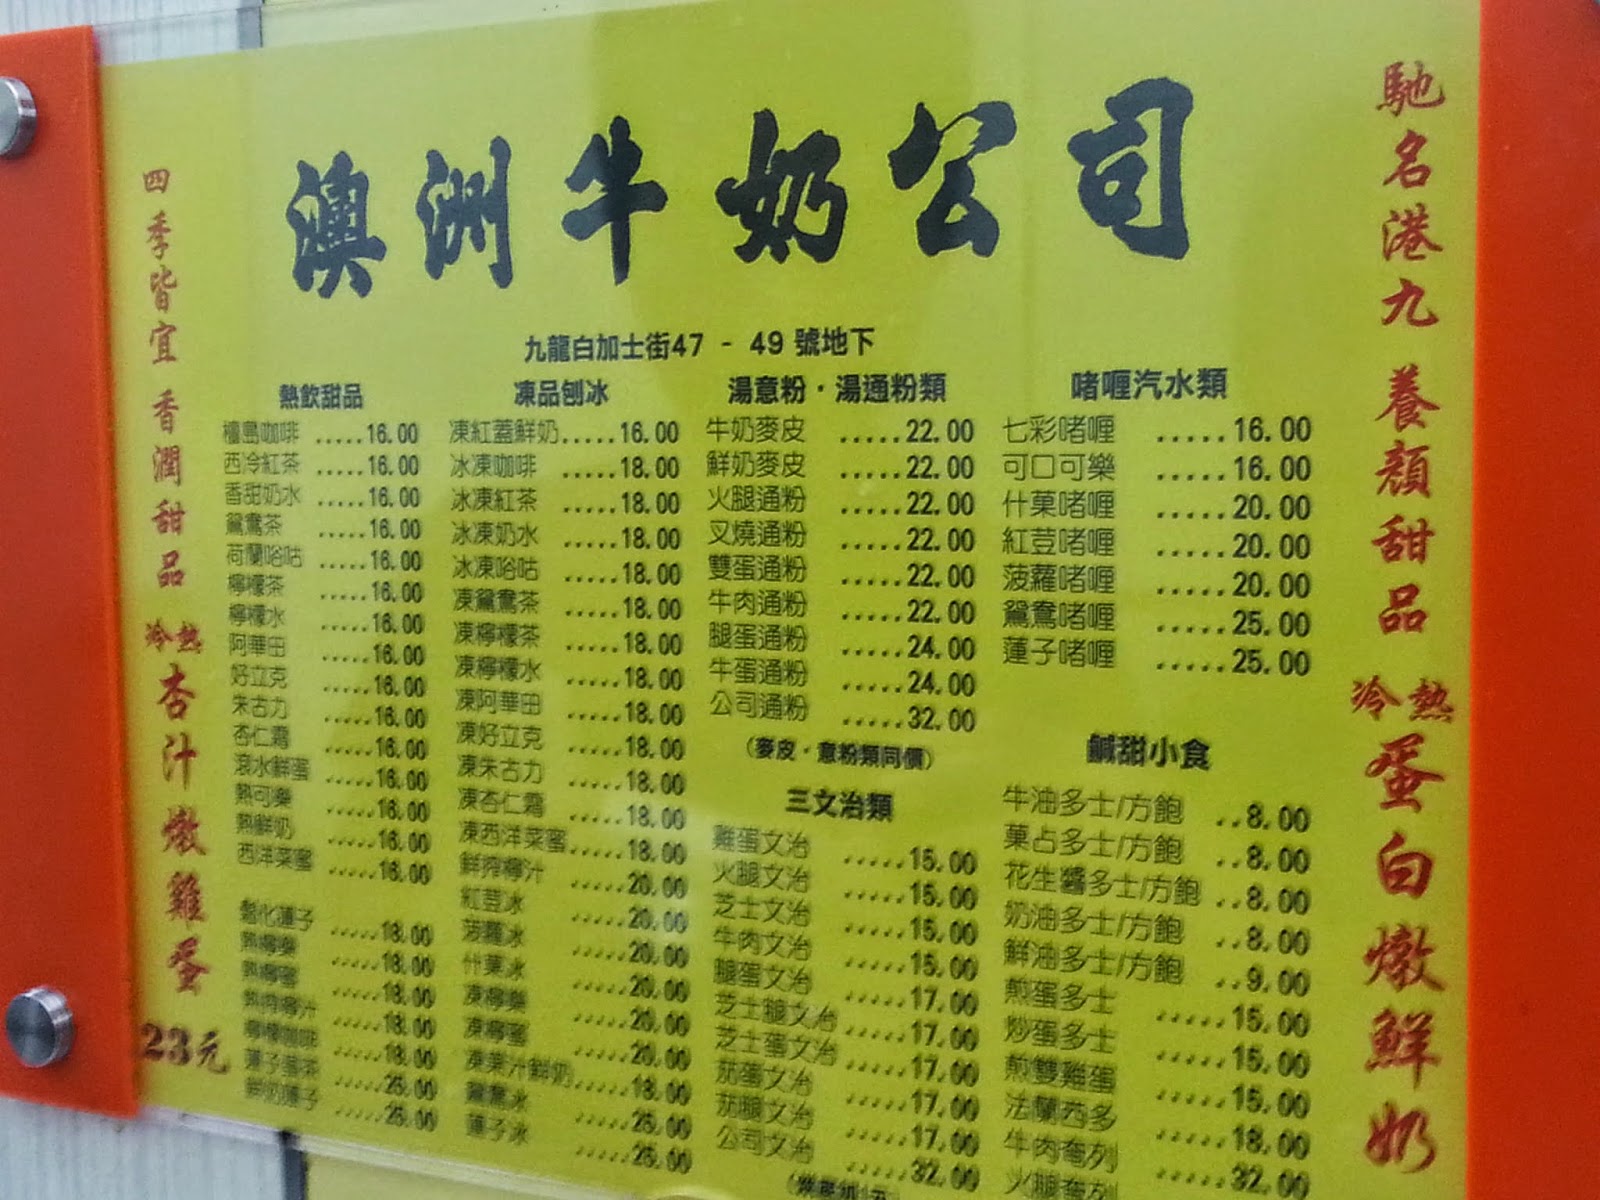 澳洲牛奶公司
九龍白加士街47 - 49 號地下
馳名港九 養顏甜品 冷熱蛋白燉鮮奶
四季皆宜 香潤甜品 冷熱杏汁燉雞蛋 23元
熱飲甜品
檀島咖啡 .....16.00
西冷紅茶 .....16.00
香甜奶水 .....16.00
鴛鴦茶 .....16.00
荷蘭唂咕 .....16.00
檸檬茶 .....16.00
檸檬水 .....16.00
阿華田 .....16.00
好立克 .....16.00
朱古力 .....16.00
杏仁霜 .....16.00
滾水鮮蜜 .....16.00
熱可樂 .....16.00
熱鮮奶 .....16.00
西洋菜蜜 .....16.00
.....18.00
熱檸樂 .....18.00
熱檸蜜 .....18.00
.....18.00
檸檬咖啡 .....18.00
蓮子蛋茶 .....25.00
鮮奶蓮子 .....25.00
凍品刨冰
凍紅蓋鮮奶.....16.00
冰凍咖啡 .....18.00
冰凍紅茶 .....18.00
冰凍奶水 .....18.00
冰凍唂咕 .....18.00
凍鴛鴦茶 .....18.00
凍檸檬茶 .....18.00
凍檸檬水 .....18.00
凍阿華田 .....18.00
凍好立克 .....18.00
凍朱古力 .....18.00
凍杏仁霜 .....18.00
凍西洋菜蜜.....18.00
鮮搾檸汁 .....20.00
紅荳冰 .....20.00
菠蘿冰 .....20.00
什菓冰 .....20.00
凍檸樂 .....20.00
凍檸蜜 .....20.00
凍菓汁鮮奶.....18.00
鴛鴦冰 .....25.00
蓮子冰 .....25.00
湯意粉．湯通粉類
牛奶麥皮 .....22.00
鮮奶麥皮 .....22.00
火腿通粉 .....22.00
叉燒通粉 .....22.00
雙蛋通粉 .....22.00
牛肉通粉 .....22.00
腿蛋通粉 .....24.00
牛蛋通粉 .....24.00
公司通粉 .....32.00
(麥皮．意粉類同價)
三文治類
雞蛋文治 .....15.00
火腿文治 .....15.00
芝士文治 .....15.00
牛肉文治 .....15.00
腿蛋文治 .....17.00
芝士腿文治 .....17.00
芝士蛋文治 .....17.00
茄蛋文治 .....17.00
茄腿文治 .....17.00
公司文治 .....32.00
啫喱汽水類
七彩啫喱 .....16.00
可口可樂 .....16.00
什菓啫喱 .....20.00
紅荳啫喱 .....20.00
菠蘿啫喱 .....20.00
鴛鴦啫喱 .....25.00
蓮子啫喱 .....25.00
鹹甜小食
牛油多士/方飽 ..8.00
菓占多士/方飽 ..8.00
花生醬多士/方飽 ..8.00
奶油多士/方飽 ..8.00
鮮油多士/方飽 ..9.00
煎蛋多士 .....15.00
炒蛋多士 .....15.00
煎雙雞蛋 .....15.00
法蘭西多 .....18.00
牛肉奄列 .....32.00
火腿奄列